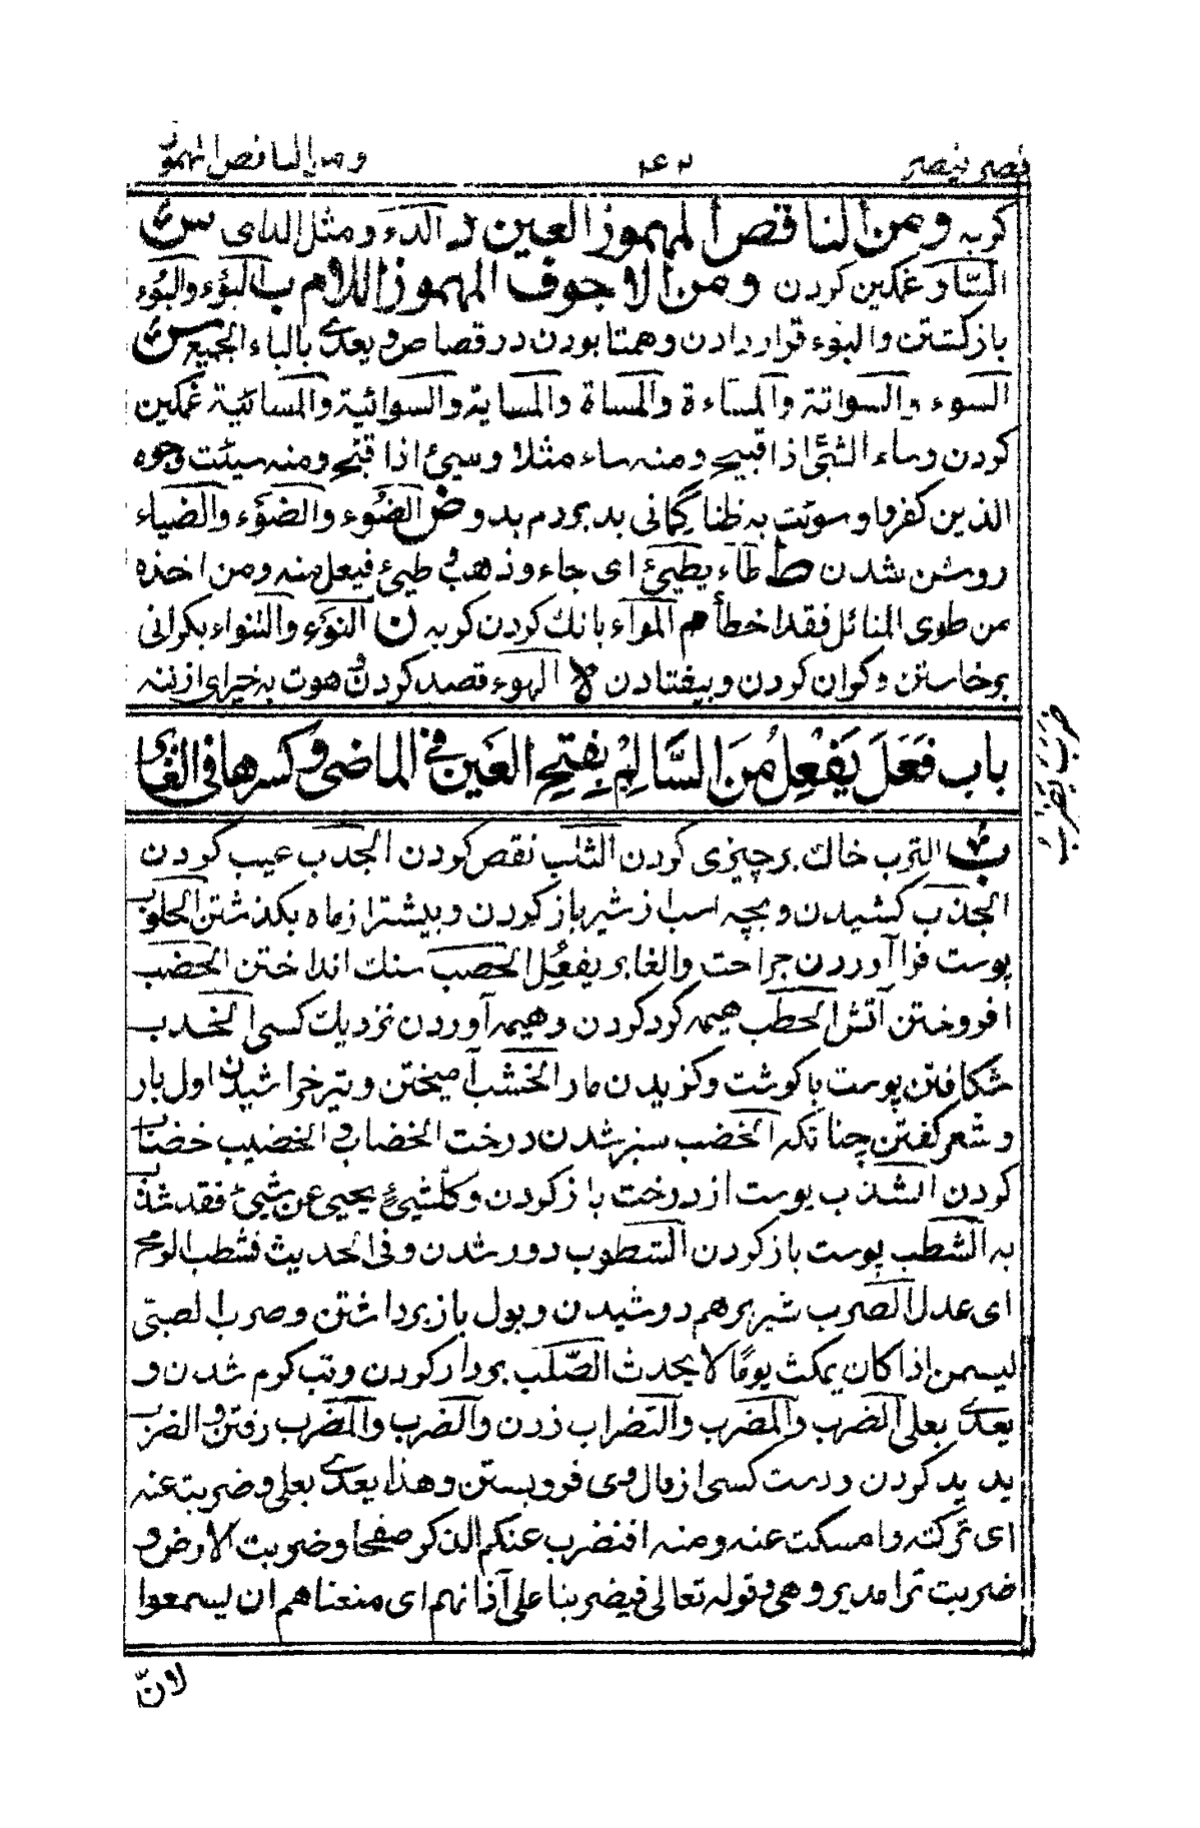 نصر ينصر ۲۶۲ ومن الناقص المهموز
كربه ومن الناقص المهموز العين د الدء ومثل الداى س
السّاو غمگين كردن ومن الاجوف المهموز اللام ب البوٴء والبوء
بازگشتن والبوٴء قرار دادن وهمتا بودن در قصاص و يعدى بالباء الجميع س
السوء والسوائة والمساءة والمساة والمساية والسوائية والمسائية غمگين
كردن وساء الشئ اذا قبيح ومنه ساء مثلا وسيئ اذا قبح ومنه سيئت وجوه
الذين كفروا وسوئت به ظنا گمانى بد بردم بدو ض الضوء والضوء والضياء
روشن شدن ط طاء يطيئ اى جاء وذهب و طيئ فيعل منه ومن اخذه
من طوى المنائل فقد اخطأ م المواء بانك كردن گربه ن النوء والتنواء بگرانى
برخاستن و گران كردن و بيفتادن لا الهوء قصد كردن هوت به خيرا اى ازننه
باب فَعَلَ يَفْعِلُ مِنَ السَّالِمْ بِفتحِ العَين فى الماضى وكسرها فى الغابر
ضرب يضرب
ب الترب خاك بر چيزى كردن الثلب نقص كردن الجدب عيب كردن
الجذب كشيدن و بچه اسب از شير باز كردن و بيشتر از ماه بگذشتن الجلوب
پوست فرا آوردن جراحت والغابر يفعُل الحصب سنك انداختن الحضب
افروختن آتش الحطب هيمه گرد كردن و هيمه آوردن نزديك كسى الخدب
شكافتن پوست با گوشت و گزيدن مار الخشب آميختن و تير خراشيدن اول بار
و شعر گفتن چنانكه الخضب سبز شدن درخت الخضاب و الخضيب خضاب
كردن الشذب پوست از درخت باز كردن وكل شيئ يحيى عن شيئ فقد شذب
به الشطب پوست باز كردن الشطوب دور شدن وفى الحديث فشطب الرمح
اى عدل الصرب شير برهم دوشيدن و بول باز برداشتن وصرب الصبى
ليسمن اذا كان يمكث يومًا لا يحدث الصّلب بردار كردن و تب گرم شدن و
يعدى بعلى الضرب والمضرب والتضراب زدن والضرب والمضرب رفتن و الضرب
پديد كردن و دست كسى از مال وى فرو بستن وهذا يعدى بعلى وضربت عنه
اى تركته وامسكت عنه ومنه افنضرب عنكم الذكر صفحا وضربت الارض و
ضربت ترامد ير وهى وقوله تعالى فضربنا على آذانهم اى منعناهم ان يسمعوا
لانّ